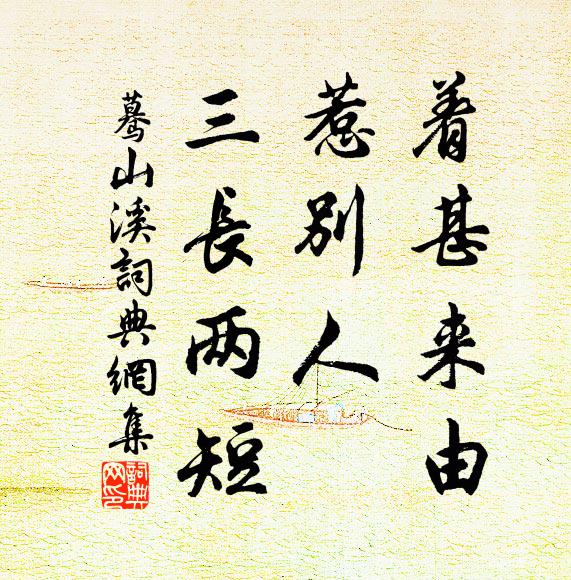 着甚来由
惹別人
三長两短
驀山溪詞典網集
詞典网印